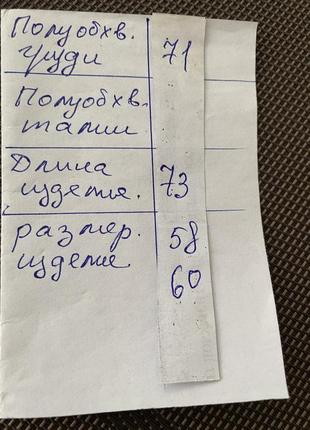 Полуобхв.
груди 71
Полуобхв.
талии
Длина
изделие. 73
размер. 58
изделие 60